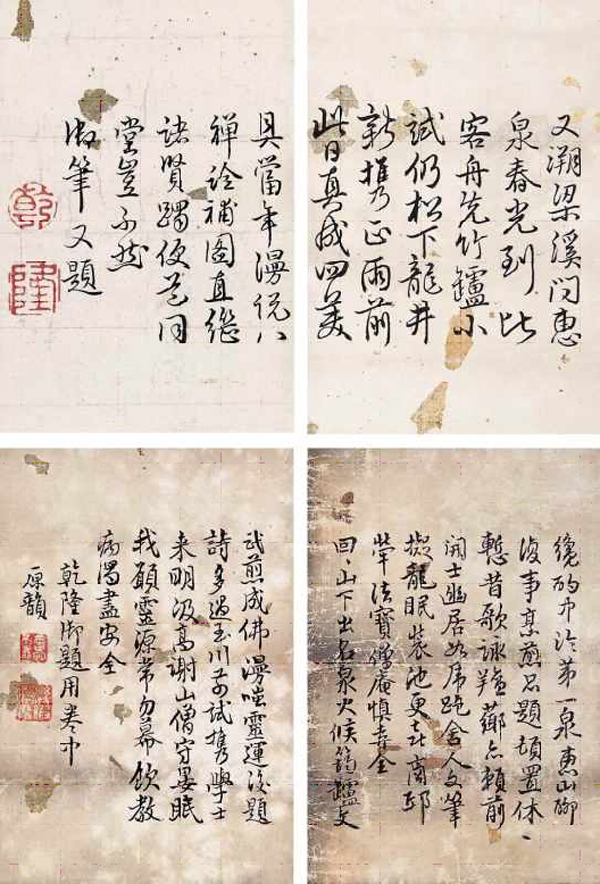 又溯梁溪問惠
泉春光到比
客舟先竹鑪小
試仍松下龍井
新攜正雨前
此日真成四美
具當年漫說八
禪詮補圖直繼
諸賢躅便是同
堂豈不然
御筆又題
乾
隆
纔酌中泠第一泉惠山聊
復事烹煎品題頓置休
慙昔歌詠羶薌亦賴前
開士幽居如虎跑舍人文筆
擬龍眠裝池更喜商邱
犖法寶僧庵慎弆全
山下出名泉火候筠鑪文
武煎成佛漫嗤靈運後題
詩多過玉川前試攜學士
来明汲高謝山僧守晏眠
我願靈源常勿幕飲教
病渴盡安全
乾隆御題用卷中
原韻